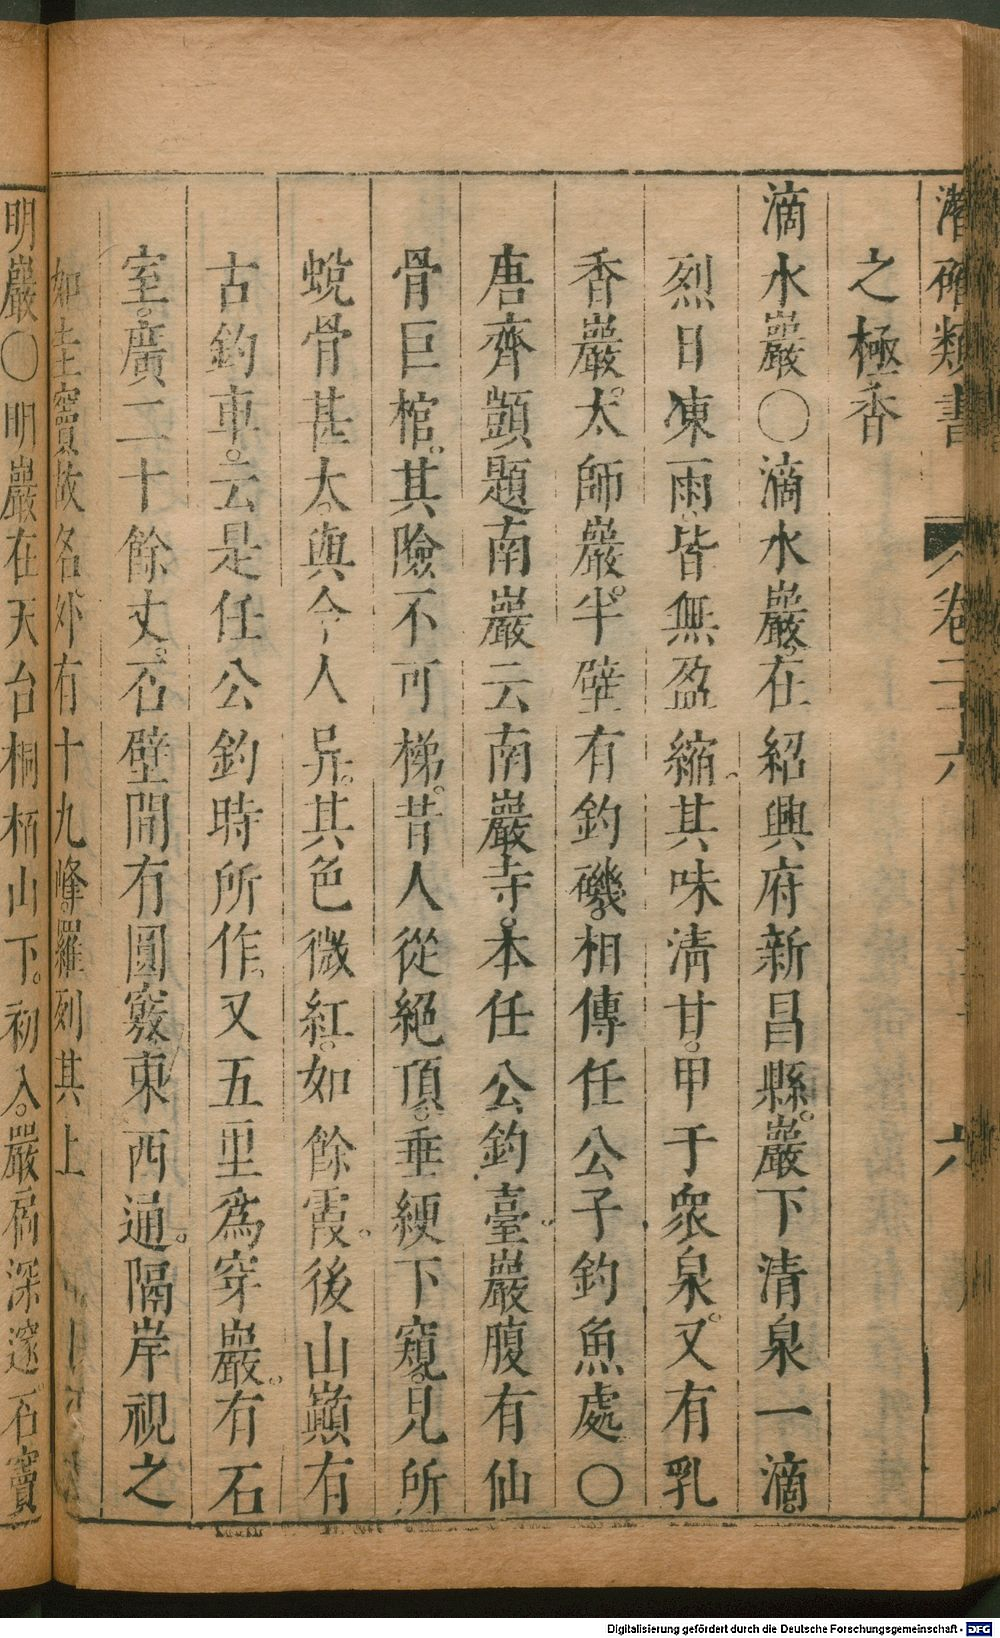 潛確類書 卷二十六 六
之極香
滴水巖〇滴水巖在紹興府新昌縣巖下清泉一滴
烈日凍雨皆無盈縮其味清甘甲于衆泉又有乳
香巖太師巖半壁有釣磯相傳任公子釣魚處〇
唐齊顗題南巖云南巖寺本任公釣臺巖腹有仙
骨巨棺其險不可梯昔人從絕頂垂綆下窺見所
蛻骨甚大與今人異其色微紅如餘霞後山巔有
古釣車云是任公釣時所作又五里爲穿巖有石
室廣二十餘丈石壁間有圓竅東西通隔岸視之
如圭竇故名外有十九峰羅列其上
明巖〇明巖在天台桐栢山下初入巖扃深邃石竇
Digitalisierung gefördert durch die Deutsche Forschungsgemeinschaft - DFG